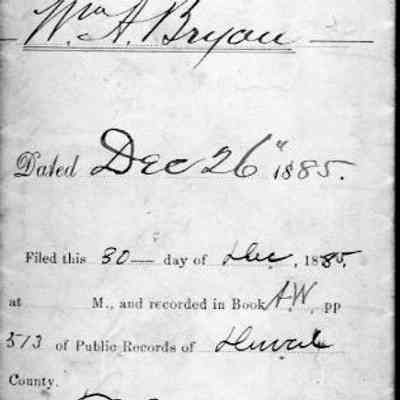 Wm A. Bryan
Dated Dec 26" 1885.
Filed this 30 — day of Dec, 1885.
at M., and recorded in Book A.W, pp
513 of Public Records of Duval
County.